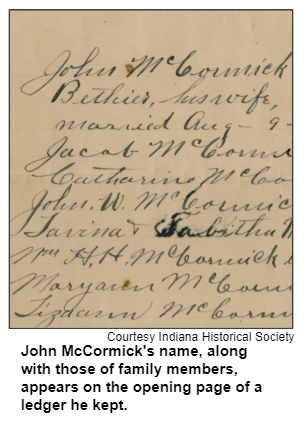 John McCormick
Bethier, his wife,
married Aug - 9 -
Jacob McCorm
Catharine McCo
John. W. McCormic
Lavina & Tabitha M
Wm H. H. McCormick
Maryann McCorm
Lizaann McCorm
Courtesy Indiana Historical Society
John McCormick's name, along
with those of family members,
appears on the opening page of a
ledger he kept.